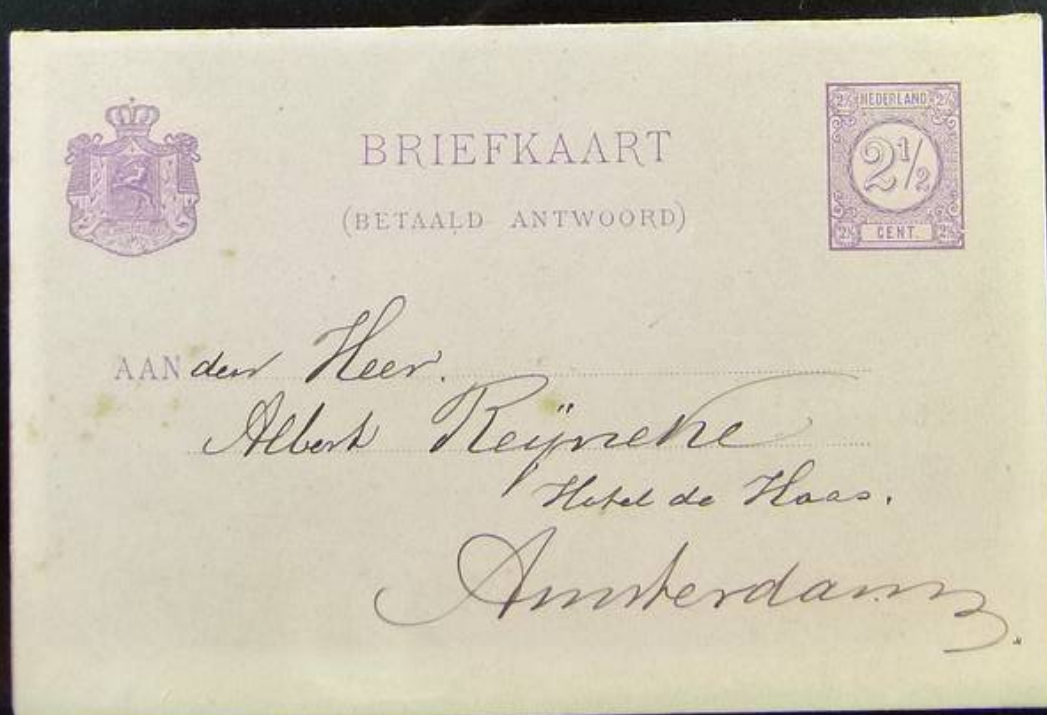 BRIEFKAART
(BETAALD ANTWOORD)
2½ NEDERLAND 2½
2½
2½ CENT. 2½
AAN den Heer.
Albert Reÿneke
Hotel de Haas.
Amsterdam.